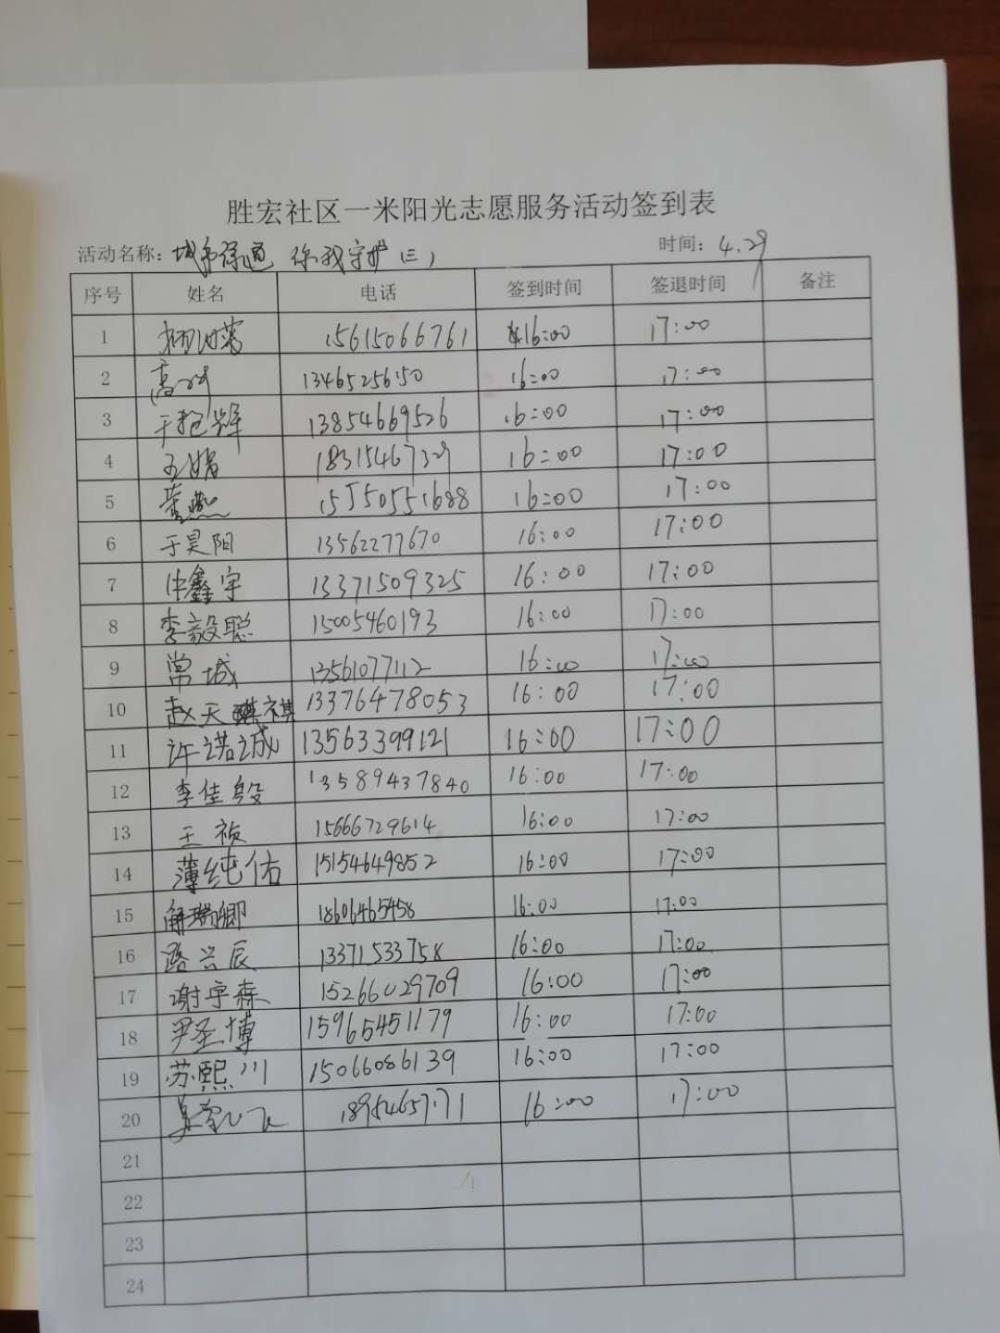 胜宏社区一米阳光志愿服务活动签到表
活动名称: 城市 你我守护(三) 时间: 4.29
序号 姓名 电话 签到时间 签退时间 备注
1 15615066761 16:00 17:00
2 高 13465256150 16:00 17:00
3 于 13854669526 16:00 17:00
4 王婧 18315467329 16:00 17:00
5 15550551688 16:00 17:00
6 于昊阳 13562277670 16:00 17:00
7 鑫宇 13371509325 16:00 17:00
8 李毅聪 15005460193 16:00 17:00
9 常城 13561077112 16:00 17:00
10 赵天祺 13376478053 16:00 17:00
11 许诺诚 13563399121 16:00 17:00
12 李佳 13589437840 16:00 17:00
13 王 15666729614 16:00 17:00
14 薄纯佑 15154649852 16:00 17:00
15 解瑞卿 18606465458 16:00 17:00
16 路兴辰 13371533758 16:00 17:00
17 谢宇森 15266029709 16:00 17:00
18 尹圣博 15965451179 16:00 17:00
19 苏熙川 15066086139 16:00 17:00
20 16:00 17:00
21
22
23
24